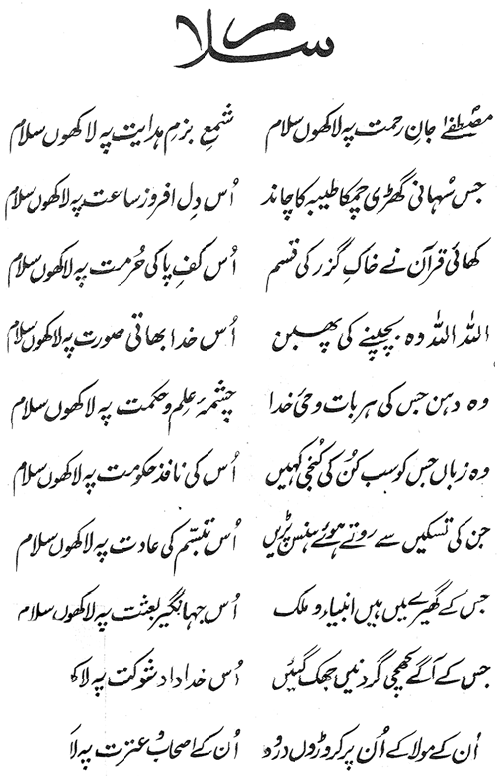 سلام
مصطفیٰ جانِ رحمت پہ لاکھوں سلام شمعِ بزمِ ہدایت پہ لاکھوں سلام
جس سُہانی گھڑی چمکا طیبہ کا چاند اُس دِل افروز ساعت پہ لاکھوں سلام
کھائی قرآن نے خاکِ گزر کی قسم اُس کفِ پا کی حُرمت پہ لاکھوں سلام
اللہ اللہ وہ بچپنے کی پھبن اُس خدا بھاتی صورت پہ لاکھوں سلام
وہ دہن جس کی ہر بات وحیِ خدا چشمۂ عِلم و حکمت پہ لاکھوں سلام
وہ زباں جس کو سب کُن کی کُنجی کہیں اُس کی نافذ حکومت پہ لاکھوں سلام
جن کی تسکیں سے روتے ہوئے ہنس پڑیں اُس تبسّم کی عادت پہ لاکھوں سلام
جس کے گھیرے میں ہیں انبیاء و ملک اُس جہانگیر بعثت پہ لاکھوں سلام
جس کے آگے کھچی گردنیں جھک گئیں اُس خداداد شوکت پہ لاکھ
اُن کے مولا کے اُن پر کروڑوں درود اُن کے اصحاب و عترت پہ لا